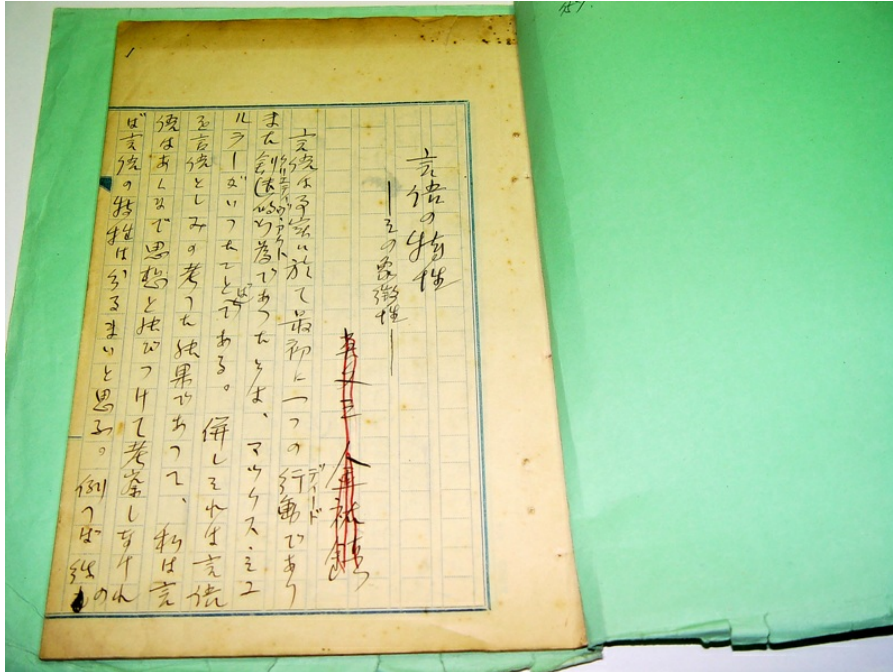 言語の特性
―その象徴性―
英文三 金 鎮
言語は事実に於て最初に一つの行動であり
ディード
また創造的行為であつたとは、マックス・ミユ
クリエティヴ・アクト
ルラーがいつたことばである。併しそれは言語
を言語としみの考つた結果であつて、私は言
語はあくまで思想と結びつけて考察しなけれ
ば言語の特性は分るまいと思ふ。例へば
1